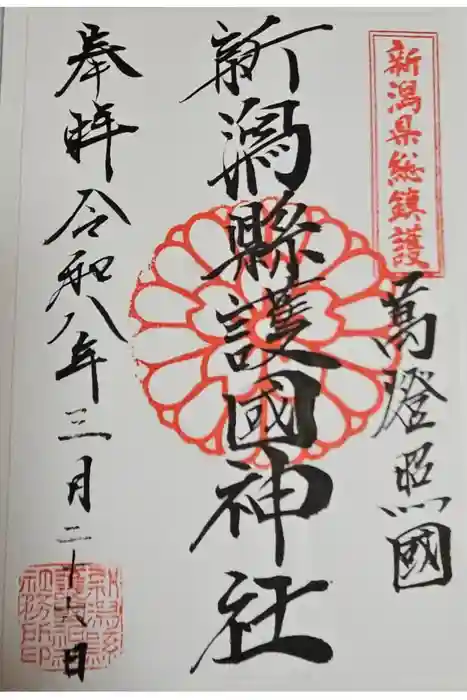 新潟県総鎮護
萬燈照國
新潟縣護國神社
奉拝 令和八年三月二十六日